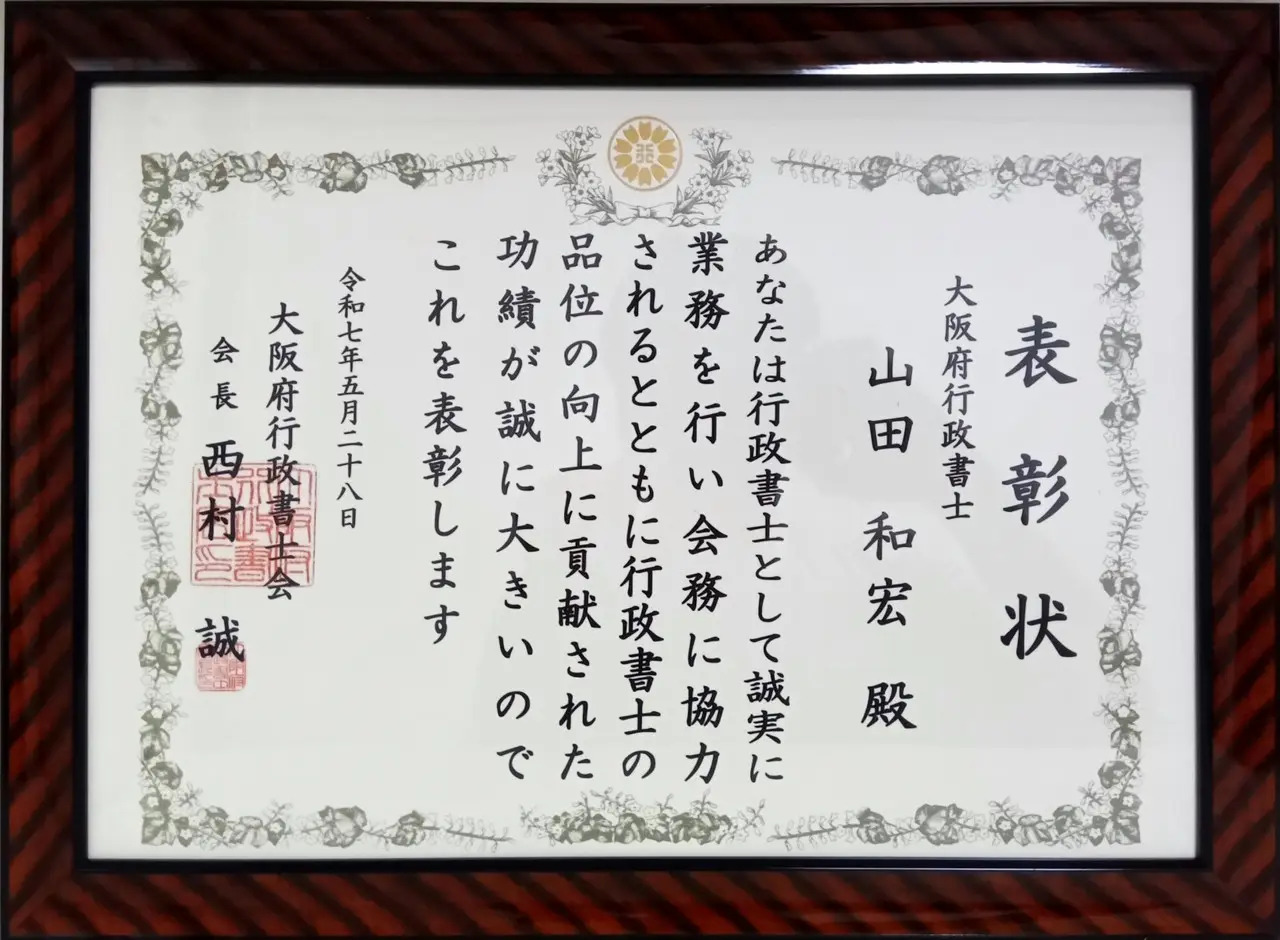 表彰状
大阪府行政書士
山田和宏殿
あなたは行政書士として誠実に
業務を行い会務に協力
されるとともに行政書士の
品位の向上に貢献された
功績が誠に大きいので
これを表彰します
令和七年五月二十八日
大阪府行政書士会
会長 西村 誠